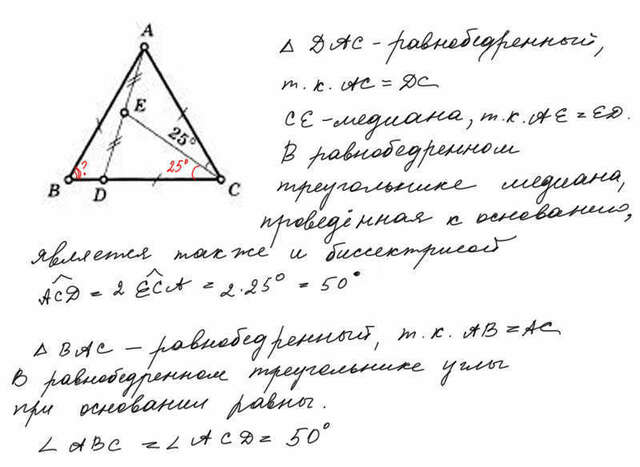 A
E
25°
?
25°
B
D
C
△ DAC - равнобедренный,
т.к. AC = DC
CE - медиана, т.к. AE = ED.
В равнобедренном
треугольнике медиана,
проведённая к основанию,
является также и биссектрисой
ACD = 2 ECA = 2·25° = 50°
△ BAC — равнобедренный, т.к. AB = AC
В равнобедренном треугольнике углы
при основании равны.
∠ ABC = ∠ ACD = 50°